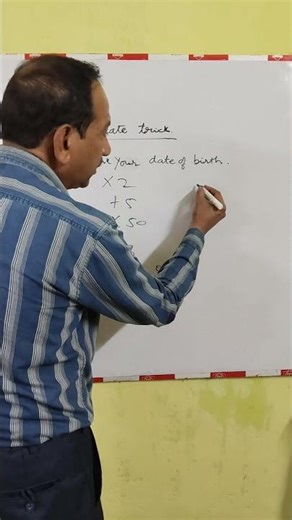 ate trick
your date of birth.
× 2
+ 5
× 50